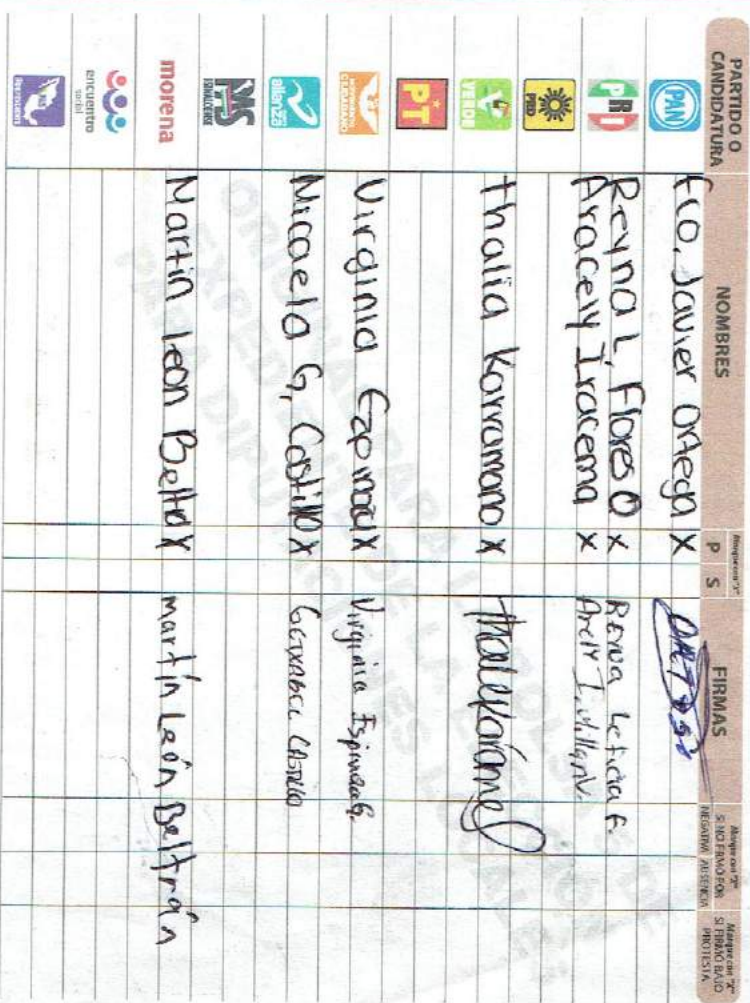 PARTIDO O CANDIDATURA NOMBRES Marque con "X" P S FIRMAS Marque con "X" SI NO FIRMÓ POR NEGATIVA AUSENCIA Marque con "X" SI FIRMÓ BAJO PROTESTA
PAN Fco. Javier Ortega X
PRI Reyna L, Flores O X Reyna Leticia F.
Aracely Iracema X Arcly I.
PRD
VERDE Thalia Karramano X
PT
MOVIMIENTO CIUDADANO Virginia Espinoza X Virginia Espinoza G.
alianza Micaela G, Castillo X Castillo
PAS SINALOENSE
morena Martin Leon Beltra X martín León Beltrán
encuentro social
ORIGINAL PARA LA BOLSA DE
EXPEDIENTE DE LA ELECCIÓN
PARA DIPUTACIONES LOCALES